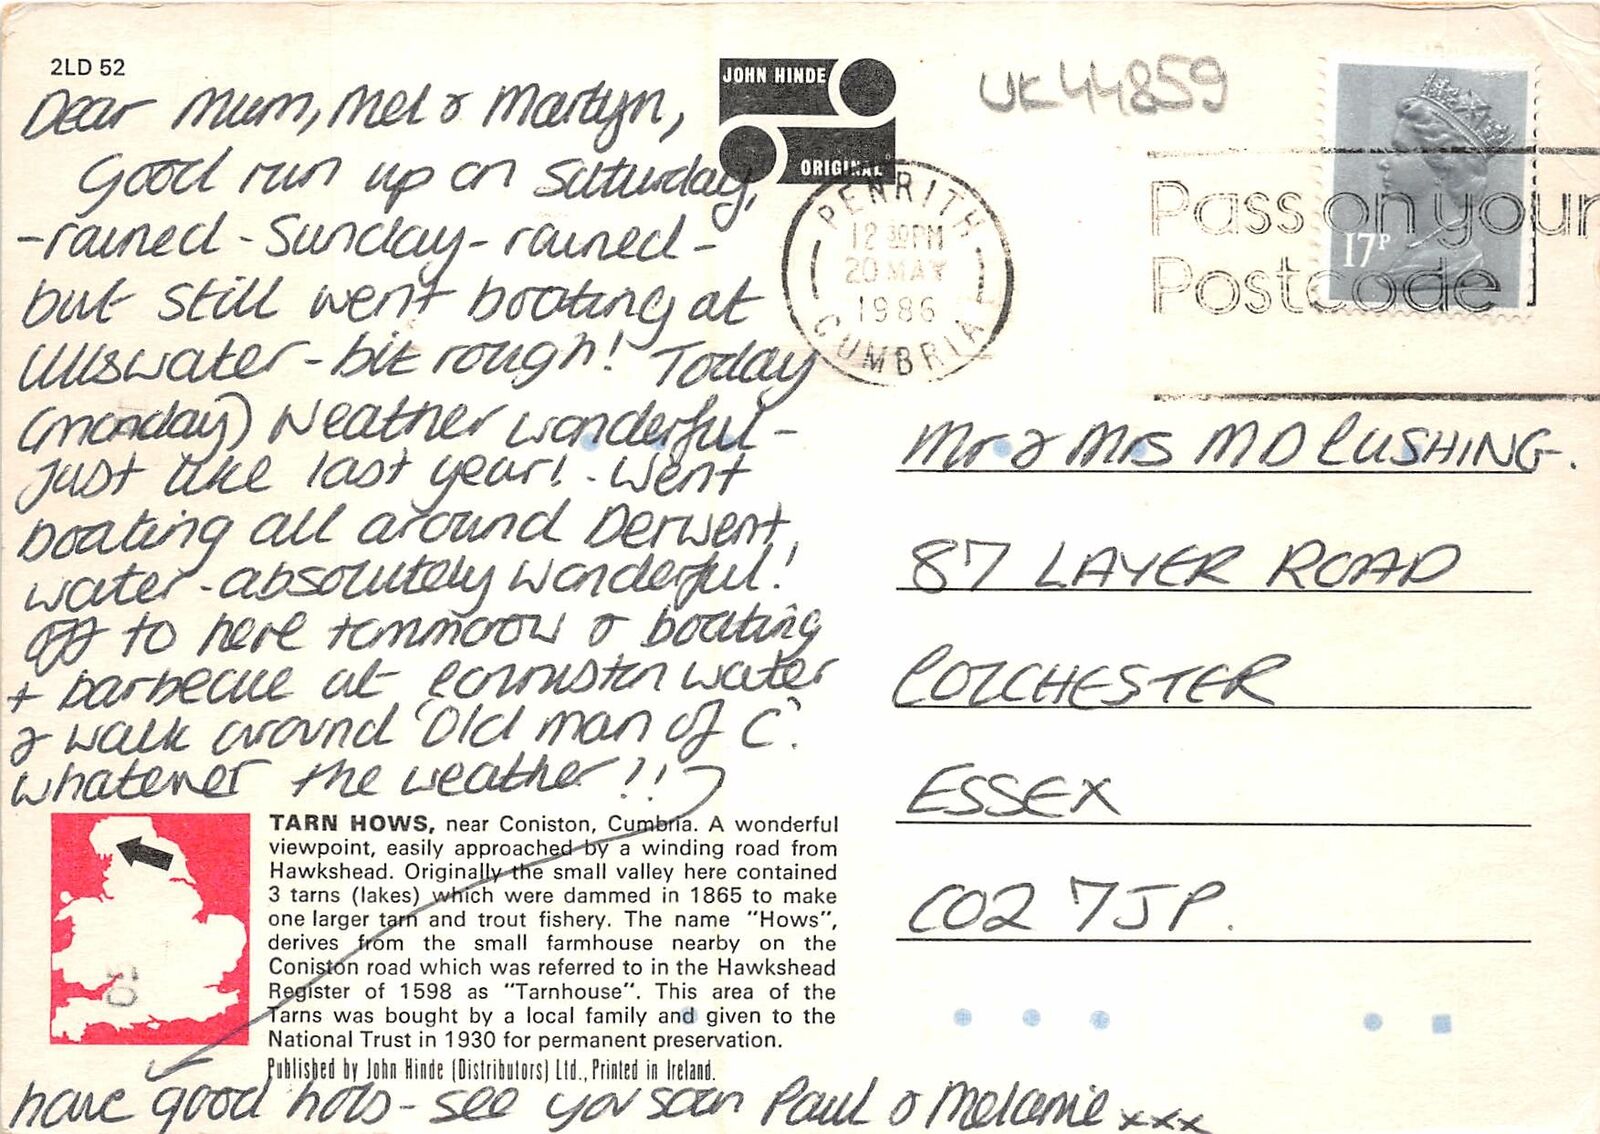 2LD 52
Dear Mum, Mel & Martyn,
Good run up on Saturday,
-rained - Sunday - rained -
but still went boating at
Ullswater - bit rough! Today
(monday) Weather wonderful -
Just like last year! - Went
boating all around Derwent
water - absolutely wonderful!
off to here tommorow & boating
+ barbecue at Connistin water
& walk around 'Old man of C'.
whatever the weather!!
have good hols - see you soon Paul & Melanie xxx
JOHN HINDE
ORIGINAL
UK44859
PENRITH
12 30PM
20 MAY
1986
CUMBRIA
Pass on your
Postcode
17P
Mr & Mrs M D CUSHING.
87 LAYER ROAD
COLCHESTER
ESSEX
CO2 7JP.
TARN HOWS, near Coniston, Cumbria. A wonderful
viewpoint, easily approached by a winding road from
Hawkshead. Originally the small valley here contained
3 tarns (lakes) which were dammed in 1865 to make
one larger tarn and trout fishery. The name "Hows",
derives from the small farmhouse nearby on the
Coniston road which was referred to in the Hawkshead
Register of 1598 as "Tarnhouse". This area of the
Tarns was bought by a local family and given to the
National Trust in 1930 for permanent preservation.
Published by John Hinde (Distributors) Ltd., Printed in Ireland.